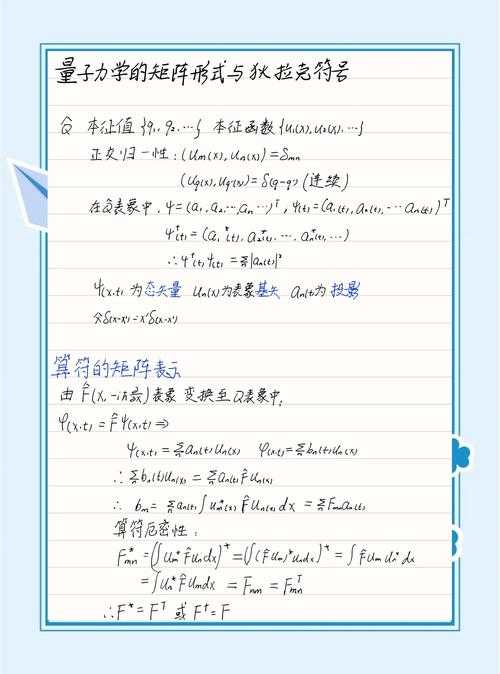 量子力学的矩阵形式与狄拉克符号
Q̂ 本征值 {q₁, q₂, ⋯} 本征函数 {u₁(x), u₂(x), ⋯}
正交归一性: (um(x), un(x)) = δmn
(uq(x), uq'(x)) = δ(q-q') (连续)
在Q表象中, ψ = (a₁, a₂, ⋯, an ⋯)ᵀ, ψ(t) = (a₁(t), a₂(t), ⋯ an(t))ᵀ
ψ†(t) = (a₁*(t), a₂*(t), ⋯, an*(t), ⋯)
∴ ψ†(t) ψ(t) = Σn |an(t)|²
ψ(x,t) 为态矢量 un(x)为表象基矢 an(t)为投影
δ(x-x') = x'δ(x-x')
算符的矩阵表示
由 F̂(x, -iħ ∂/∂x) 表象 变换至Q表象中:
φ(x,t) = F̂ψ(x,t) ⇒
ψ(x,t) = Σn an(t) un(x) φ(x,t) = Σn bn(t) un(x)
∴ Σn bn(t) un(x) = Σn an(t) F̂ un(x)
∴ bm = Σn an(t) ∫ um*(x) F̂ un(x) dx = Σn Fmn an(t)
算符厄密性:
Fmn* = (∫ um* F̂ un dx)* = (∫ (F̂ um)* un dx)* = ∫ F̂ um un* dx
= ∫ un* F̂ um dx = Fnm = Fmnᵀ
∴ F* = Fᵀ 或 F† = F